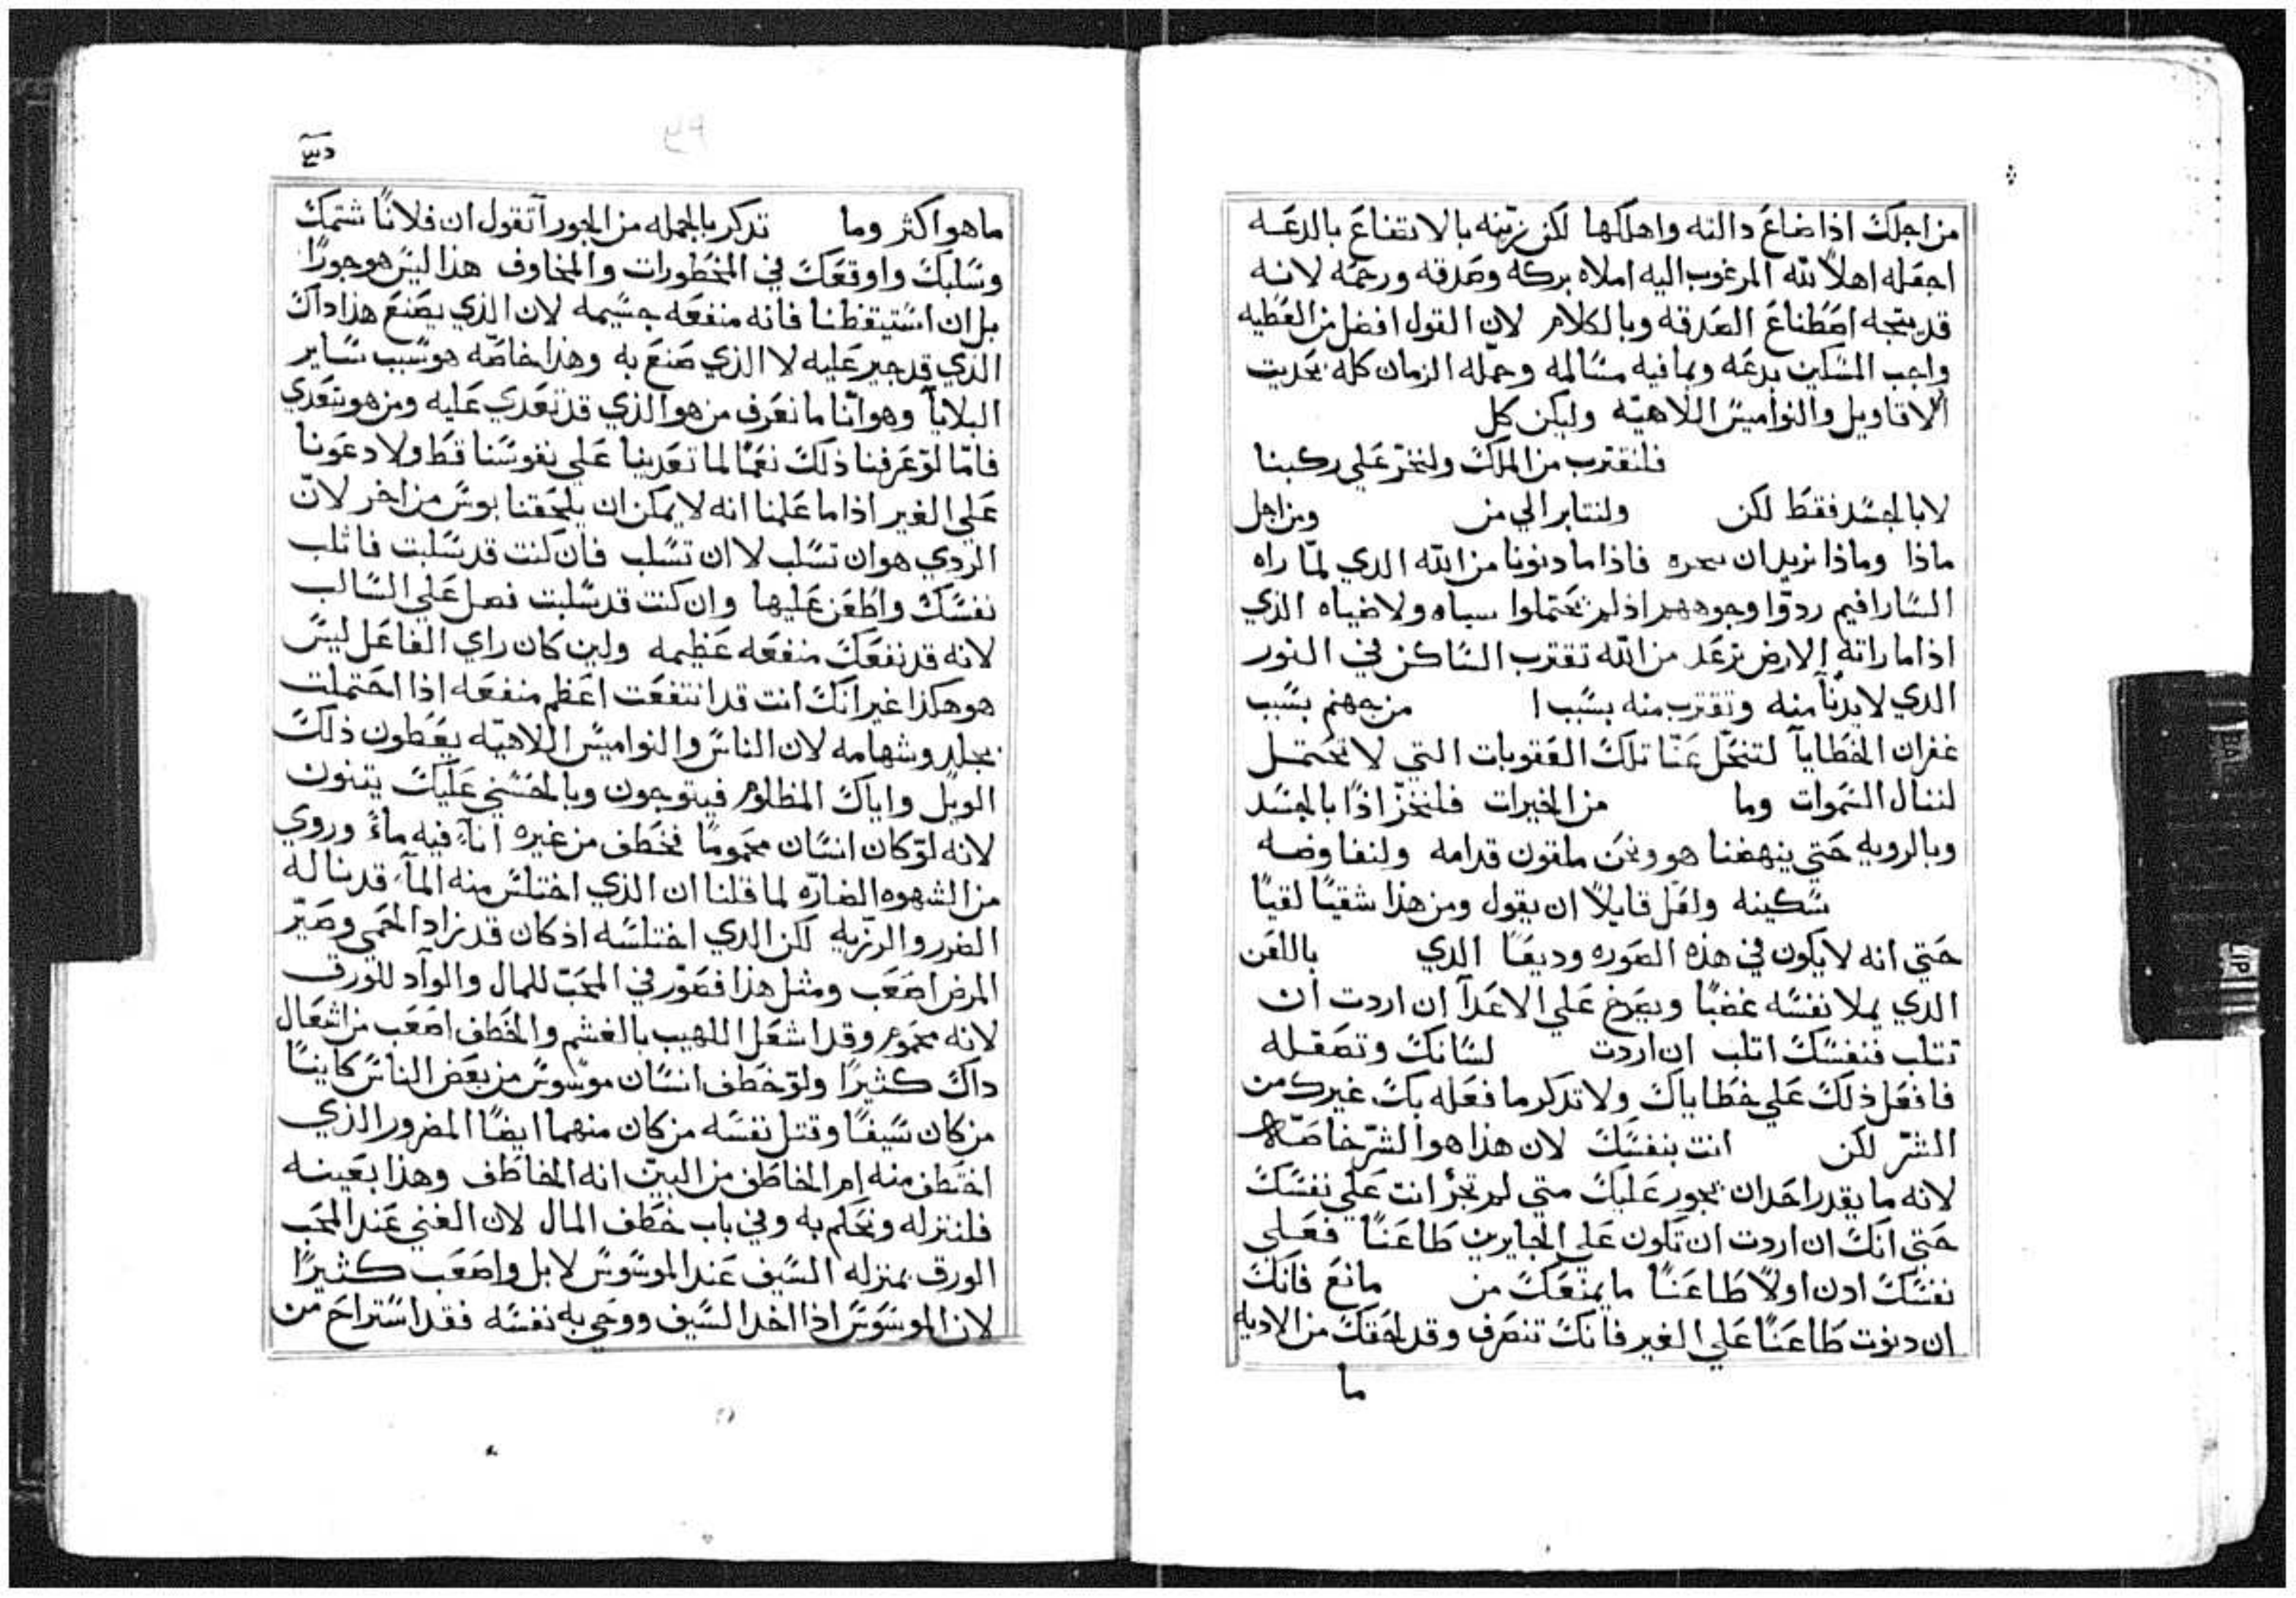 من اجلك اذا ضاع دالته واهلكها لكن زينه بالاتضاع بالدعه
اجعله اهلاً لله المرغوب اليه املاه بركه وصدقه ورحمه لانه
قد يتجه اصطناع الصدقه وبالكلام لان القول افضل من العطيه
واجب المسكين بدعه وبما فيه مسالمه وحمله الزمان كله بحديت
الاقاويل والنواميس اللاهيه وليكن كل
فلنقترب من الملك ولنخر علي ركبنا
لا بالجسد فقط لكن ولنتابر الي من ومن اجل
ماذا وماذا نريد ان فاذا ما دنونا من الله الدي لما راه
السارافيم ردوا وجوههم اذ لم تحتملوا ولا ضياه الذي
اذا ما راته الارض ترعد من الله تقترب الساكن في النور
الدي لا يدنا منه وتقترب منه بسبب ا من جهنم بسبب
غفران الخطايا لتنحل عنا تلك العقوبات التي لا تحتمل
لننال السموات وما من الخيرات فلنخر اذاً بالجسد
وبالرويه حتي ينهضنا هو ونحن ملقون قدامه ولنفاوضه
سكينه ولعل قايلاً ان يقول ومن هذا شقياً لقياً
حتي انه لا يكون في هذه الصوره وديعاً الدي باللعن
الدي يملا نفسه غضباً ويصرخ علي الاعدا ان اردت ان
تتلب فنفسك اتلب ان اردت لسانك وتصقله
فافعل ذلك علي خطاياك ولا تدكر ما فعله بك غيرك من
الشر لكن انت بنفسك لان هذا هو الشر خاصه
لانه ما يقدر احد ان يجور عليك متي لم تجر انت علي نفسك
حتي انك ان اردت ان تكون علي الجايرين طاعناً فعلي
نفسك ادن اولاً طاعناً ما يمنعك من مانع فانك
ان دنوت طاعناً علي الغير فانك تنصرف وقد لحقك من الاديه
ما
ما هو اكثر وما تدكر بالجمله من الجور آتقول ان فلاناً شتمك
وسلبك واوقعك في المخطورات والمخاوف هذا ليس هو جوراً
بل ان استيقظنا فانه منفعه جسيمه لان الذي يصنع هذا داك
الذي قد جير عليه لا الذي صنع به وهذا خاصه هو سبب ساير
البلايا وهو انا ما نعرف من هو الذي قد تعدي عليه ومن هو يتعدي
فاما لو عرفنا ذلك نعماً لما تعدينا علي نفوسنا قط ولا دعونا
علي الغير اذا ما علمنا انه لا يمكن ان يلحقنا بوس من اخر لان
الردي هو ان تسلب لا ان تسلب فان كنت قد سلبت فاتلب
نفسك واطعن عليها وان كنت قد سلبت فصل علي السالب
لانه قد نفعك منفعه عظيمه ولين كان راي الفاعل ليس
هو هكذا غير انك انت قد انتفعت اعظم منفعه اذا احتملت
بجلد وشهامه لان الناس والنواميس اللاهيه يغطون ذلك
الويل واياك المظلوم فيتوجون وبالحسني عليك يتنون
لانه لو كان انسان محموماً فخطف من غيره اناءً فيه ماءً وروي
من الشهوه الضاره لما قلنا ان الذي اختلس منه الماء قد ناله
الضرر والرزيه لكن الدي اختلسه اذ كان قد زاد الحمي وصير
المرض اصعب ومثل هذا فصور في المحب للمال والوآد للورق
لانه محموم وقد اشعل اللهيب بالغشم والخطف اصعب من اشعال
داك كثيراً ولو خطف انسان موسوس من بعض الناس كايناً
من كان سيفاً وقتل نفسه من كان منهما ايضاً المضرور الذي
اختطف منه ام الخاطف من البين انه الخاطف وهذا بعينه
فلننزله ونحكم به وفي باب خطف المال لان الغني عند المحب
الورق بمنزله السيف عند الموسوس لا بل واصعب كثيراً
لان الموسوس اذا اخد السيف ووجي به نفسه فقد استراح من